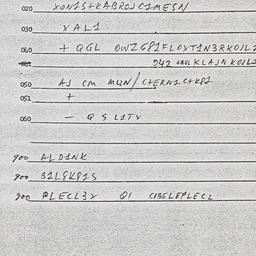 020 XON1S+KABROJC1MESN
030 YAL1
040 + QGL OWZGP1FLOXT1N3RKOJL2
042 +BCL KLAJN KOJL2
050 AJ CM MUN/ C+ERN1C+KP1
051 +
060 - Q S L1TV
900 ALD1NK
900 31L8KP1S
900 PLECL3X Q1 CIBELEPLECL